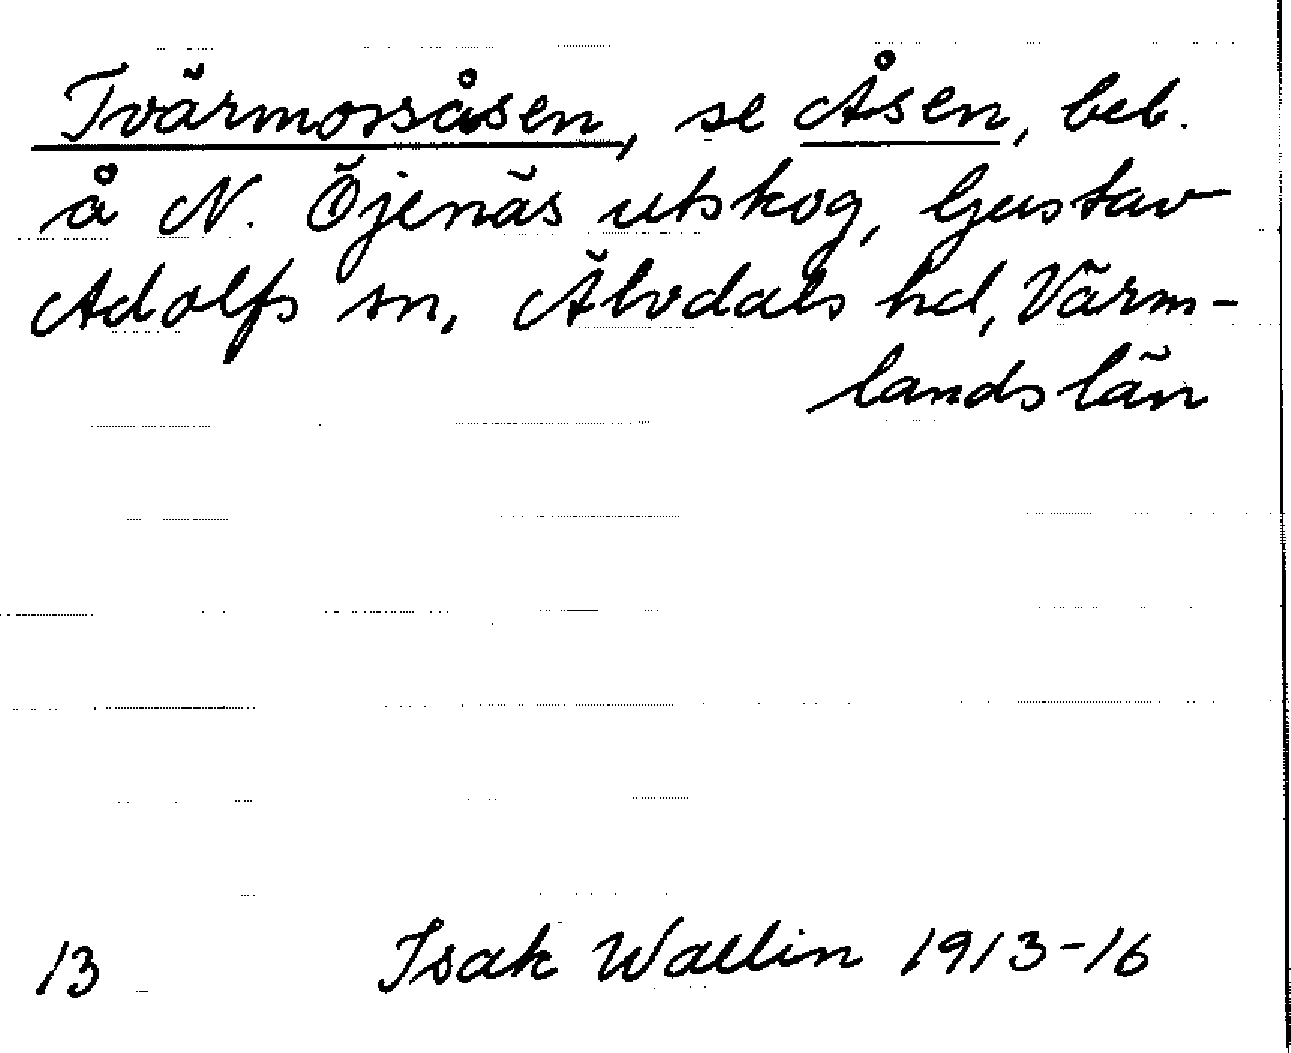 Tvärmossåsen, se Åsen, beb.
å N. Öjenäs utskog, Gustav
Adolfs sn, Älvdals hd, Värm-
lands län
13 Isak Wallin 1913-16